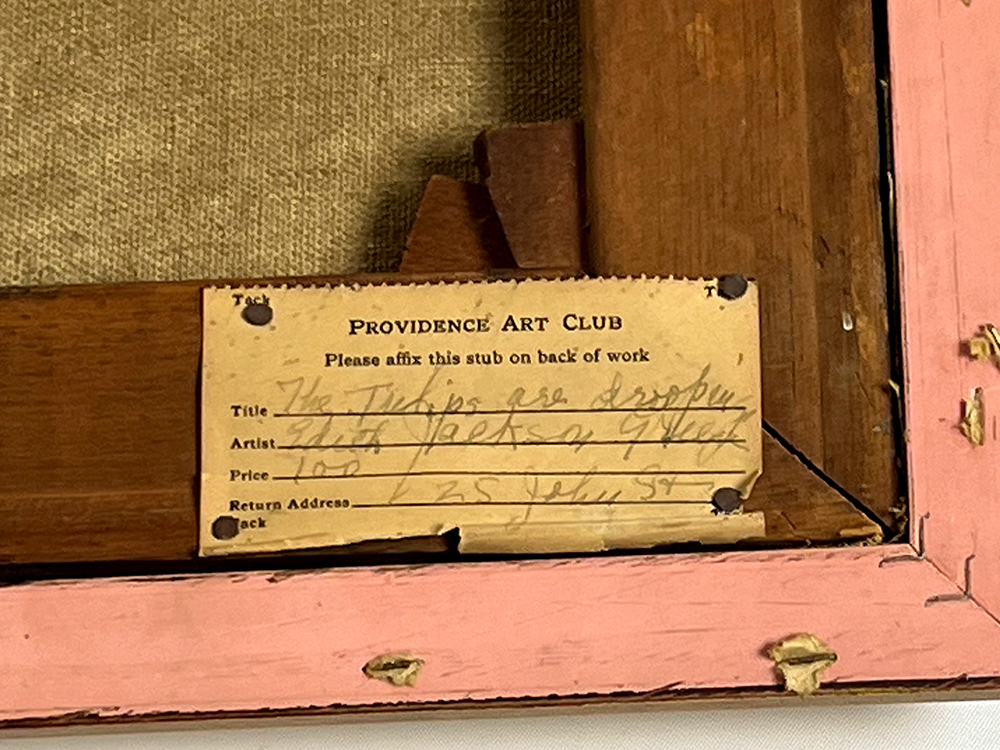 Tack T
PROVIDENCE ART CLUB
Please affix this stub on back of work
Title The Tulips are droopin
Artist Edith Jackson
Price 100
Return Address 25 John St
ack